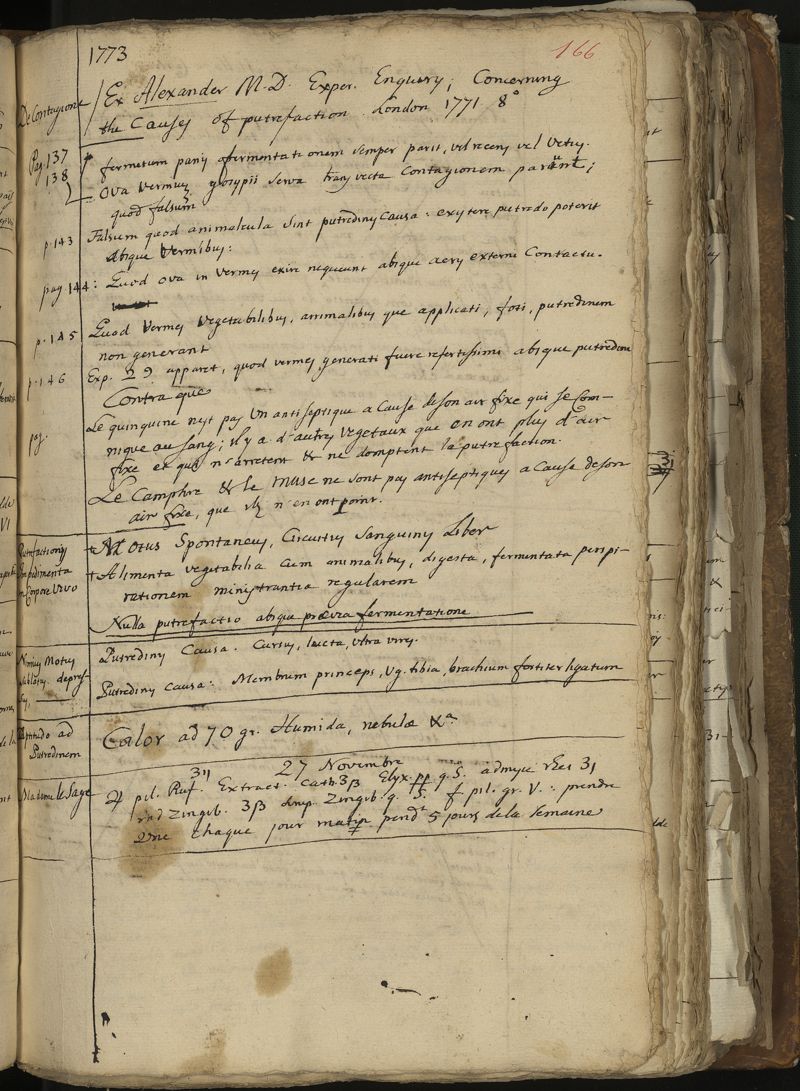 1773
166
De Contagione
Ex Alexander M.D. Exper. Enquiry; Concerning
the Causes of putrefaction. London 1771 8°
Pag. 137 fermetum panis fermentationem semper parit, vel recens vel vetus.
138 Ova Vermium gossypii serva transvecta Contagionem pariunt;
quod falsum
p. 143 Falsum quod animalcula sint putredinis causa: existere putredo poterit
absque Vermibus:
pag. 144: Quod ova in vermes exire nequeunt absque aeris externi Contactu.
p. 145 Quod Vermes Vegetabilibus, animalibus que applicati, foti, putredinem
non generant
p. 146 Exp. n 9 apparet, quod vermes generati fuere refertissimi absque putredine
pag. Contra que
Le quinquine n'est pas Un antiseptique a Cause de son air fixe qui se Com-
nique au sang; il y a d'autres Vegetaux que en ont plus d'air
fixe et qui n'arretent & ne domptent la putrefaction.
Le Camphre & le Musc ne sont pas antiseptiques a Cause de son
air fixe, que ils n'en ont point.
Putrefactionis
Impedimenta
in Corpore Vivo
Motus Spontaneus, Circuitus Sanguinis Liber
Alimenta vegetabilia Cum animalibus, digesta, fermentata perspi-
rationem ministrantia regularem
Nulla putrefactio absque prævia fermentatione
Nimius Motus
sublatus. depres-
sus,
Putredinis Causa. Cursus, lucta, ultra vires.
Putredinis Causa: Membrum princeps, Vg. tibia, brachium fortiter ligatum
Aptitudo ad
Putredinem
Calor ad 70 gr. Humida, nebulæ &a
27 Novembre
Madame le Sage ♃ pil. Ruf. 3ij Extract. Cath. 3β Elyx. pp q. S. admisce Rhei 3j
rad Zingib. 3β Zingib. q. S. f pil. gr. V. : prendre
Une chaque jour matin pendt 5 jours de la Semaine